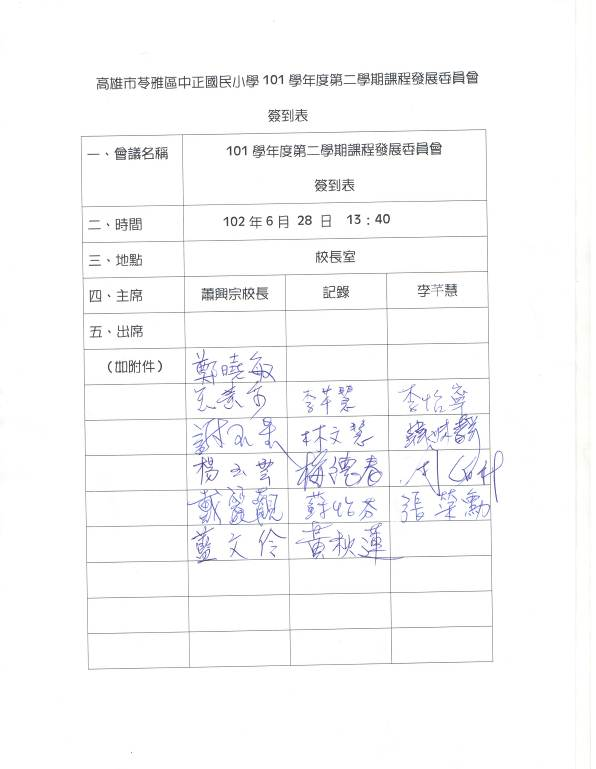 高雄市苓雅區中正國民小學 101 學年度第二學期課程發展委員會
簽到表
一、會議名稱 101 學年度第二學期課程發展委員會
簽到表
二、時間 102 年 6 月 28 日 13：40
三、地點 校長室
四、主席 蕭興宗校長 記錄 李芊慧
五、出席
（如附件） 鄭曉敏
李芊慧 李怡寧
林文慧
楊玉雲 梅德春
戴麗觀 蘇怡芬 張榮勳
藍文伶 黃秋蓮